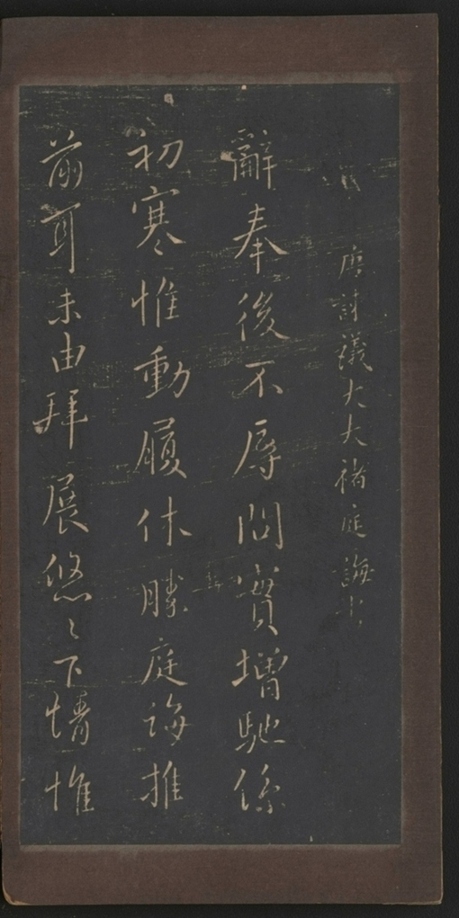 唐諫議大夫褚庭誨書
辭奉後不辱問實增馳係
初寒惟動履休勝庭誨推
前耳未由拜展悠々下情惟